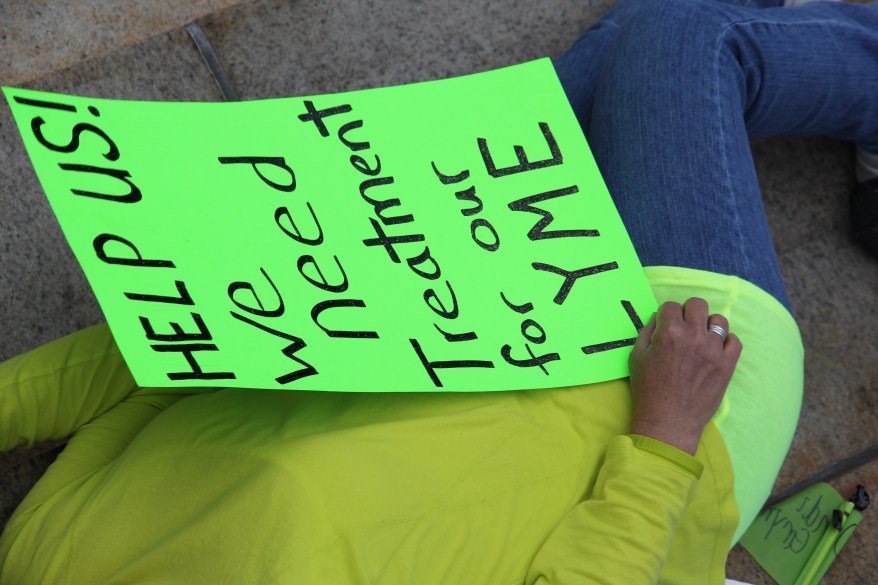 HELP US!
We need
Treatment
for our
LYME